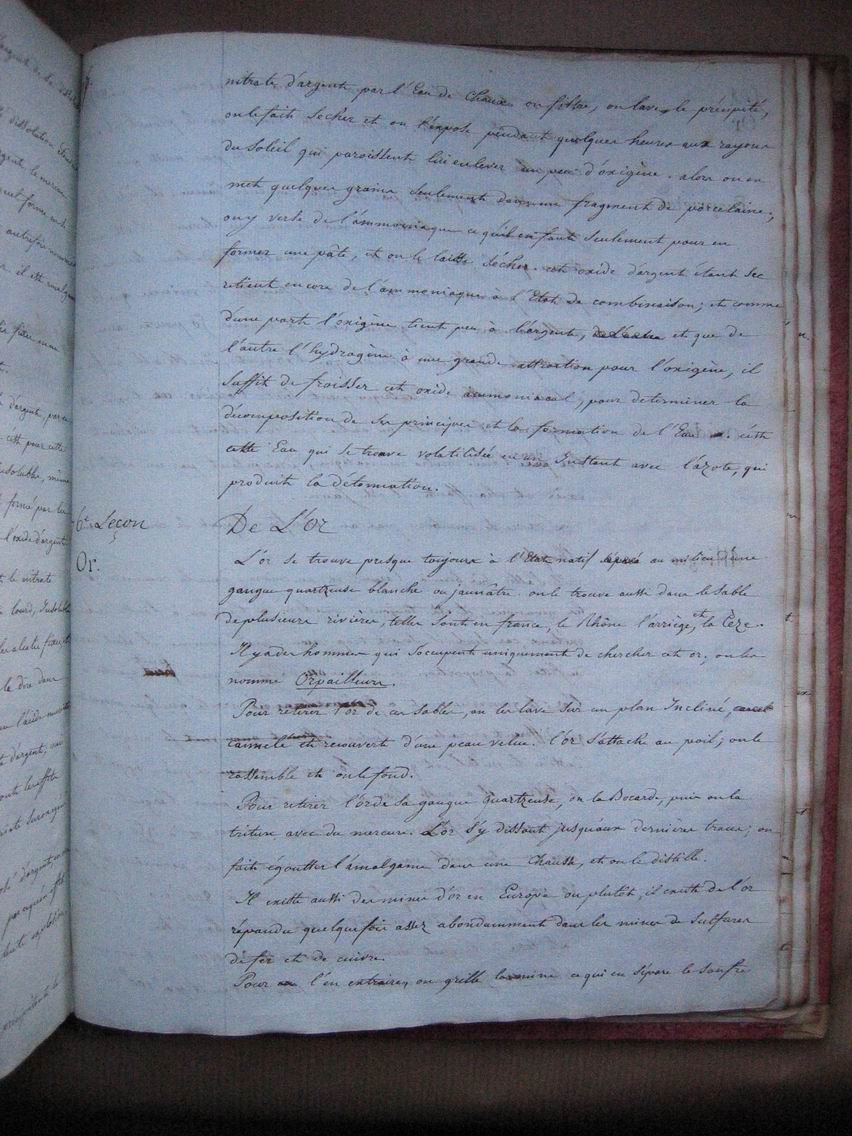 nitrate d'argent par l'Eau de Chaux on filtre, on lave le précipité,
on le fait secher et on l'expose pendant quelques heures aux rayons
du soleil qui paroissent lui enlever un peu d'oxigène. alors on en
met quelques grains seulement dans un fragment de porcelaine;
on y verse de l'ammoniaque ce qu'il en faut seulement pour en
former une pâte, et on le laisse sécher. cet oxide d'argent étant sec
retient encore de l'ammoniaque à l'Etat de combinaison; et comme
d'une part l'oxigène tient peu à l'argent, et que de
l'autre l'hydrogène à une grande attraction pour l'oxigène, il
suffit de froisser cet oxide ammoniacal, pour determiner la
decomposition de ses principes et la formation de l'Eau. c'est
cette Eau qui se trouve volatilisée en un Instant avec l'azote, qui
produit la détonnation.
6e. Leçon
Or.
De L'Or
L'or se trouve presque toujours à l'Etat natif au milieu d'une
gangue quartzeuse blanche ou jaunâtre. on le trouve aussi dans le sable
de plusieurs rivières, telles sont en france, le Rhône l'arriège, et la Cèze.
Il y a des hommes qui s'occupent uniquement de chercher cet or, on les
nomme Orpailleurs.
Pour retirer l'or de ces sables, on les lave sur un plan Incliné,
cannelé et recouvert d'une peau velue. l'or s'attache au poil; on le
rassemble et on le fond.
Pour retirer l'or de sa gangue quartzeuse, on la Bocarde, puis on la
triture avec du mercure. L'or s'y dissout jusqu'aux dernières traces; on
fait égoutter l'amalgame dans une Chausse, et on le distille.
Il existe aussi des mines d'or en Europe ou plutôt, il existe de l'or
répandu quelquefois assez abondamment dans les mines de sulfures
de fer et de cuivre.
Pour l'en extraire, on grille la mine ce qui en sépare le soufre